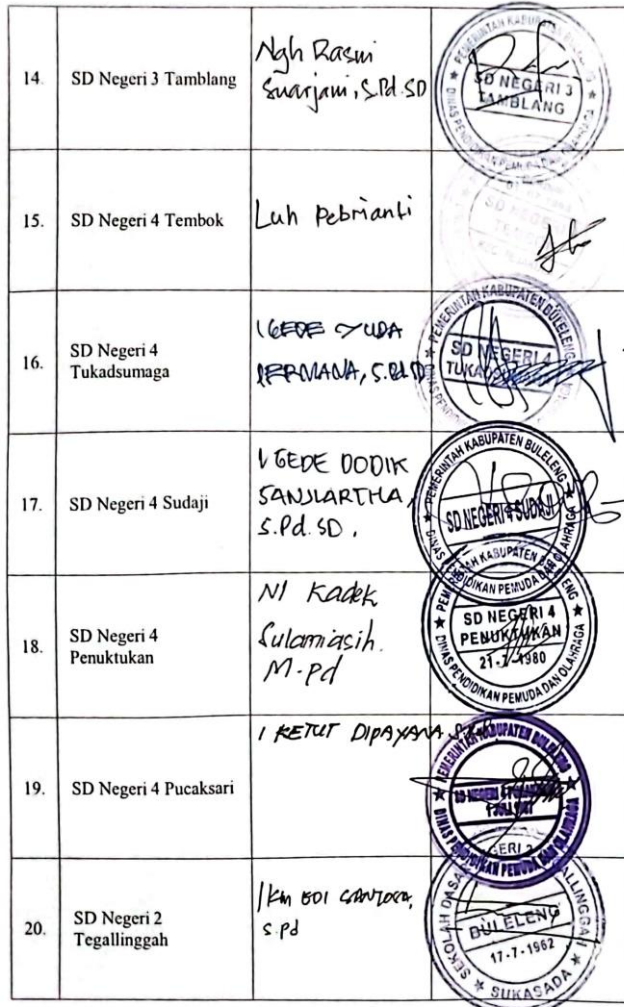 14.
SD Negeri 3 Tamblang
Ngh Rasmi
Suarjani, S.Pd.SD
PEMERINTAH KABUPATEN BULELENG
SD NEGERI 3
TAMBLANG
DINAS PENDIDIKAN PEMUDA DAN OLAHRAGA
15.
SD Negeri 4 Tembok
Luh Pebrianti
SD NEGERI
16.
SD Negeri 4
Tukadsumaga
I GEDE YUDA
PERMANA, S.Pd.SD
PEMERINTAH KABUPATEN BULELENG
SD NEGERI 4
17.
SD Negeri 4 Sudaji
I GEDE DODIK
SANJIARTHA,
S.Pd.SD.
PEMERINTAH KABUPATEN BULELENG
SD NEGERI 4 SUDAJI
DINAS PENDIDIKAN PEMUDA DAN OLAHRAGA
18.
SD Negeri 4
Penuktukan
NI Kadek
Sulamiasih.
M.Pd
SD NEGERI 4
PENUKTUKAN
21-7-1980
DINAS PENDIDIKAN PEMUDA DAN OLAHRAGA
19.
SD Negeri 4 Pucaksari
I KETUT DIPAYANA
PEMERINTAH KABUPATEN BULELENG
DINAS PENDIDIKAN PEMUDA DAN OLAHRAGA
20.
SD Negeri 2
Tegallinggah
S.Pd
BULELENG
17-7-1962
SUKASADA